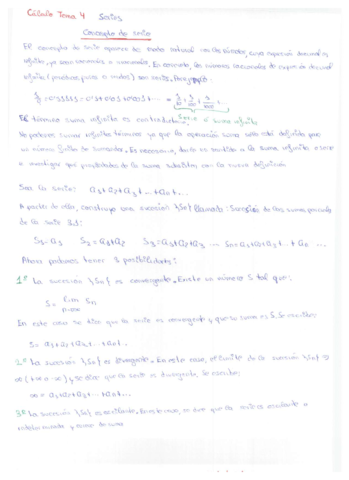 Cálculo Tema 4 Series
Concepto de serie
El concepto de serie aparece de modo natural con los números, cuya expresión decimal es
infinita, ya sean racionales o irracionales. En concreto, los números racionales de expresión decimal
infinita son series. Por ejemplo:
1/3 = 0'33333 = 0'3 + 0'03 + 0'003 + ... = 3/10 + 3/100 + 3/1000 ...
El término suma infinita es contradictorio, suma infinita
No podemos sumar infinitos términos ya que la operación suma solo está definida para
un número finito de sumandos. Es necesario, darle un sentido a la suma infinita
e investigar qué propiedades de la suma subsisten con la nueva definición
Sea la serie: a1+a2+a3+...+an+...
A partir de ella, construyo una sucesión {Sn} llamada: Sucesión de las sumas parciales
de la serie
S1=a1 S2=a1+a2 S3=a1+a2+a3 ... Sn=a1+a2+a3+...+an ...
Ahora podemos tener 3 posibilidades:
1º La sucesión {Sn} es convergente. Existe un número S tal que:
S= lim Sn
n→∞
En este caso se dice que la serie es convergente y que su suma es S. Se escribe:
S= a1+a2+a3+...+an+...
2º La sucesión {Sn} es divergente. En este caso, el límite de la sucesión {Sn} es
∞ (+∞ o -∞) y se dice que la serie es divergente. Se escribe:
∞ = a1+a2+a3+...+an+...
3º La sucesión {Sn} es oscilante. En este caso, se dice que la serie es oscilante o
y carece de suma